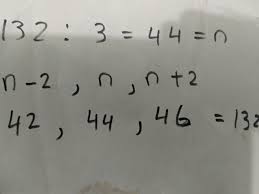 132 : 3 = 44 = n
n-2 , n , n+2
42 , 44 , 46 = 132